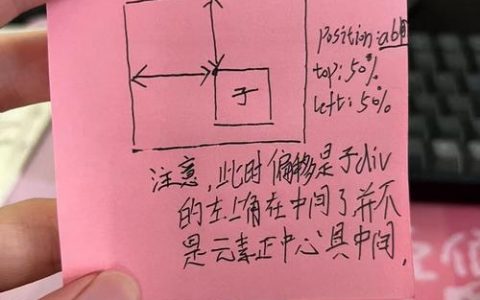 position:ab
top:50%
left:50%
子
注意,此时偏移是子div
的左上角在中间了,并不
是元素正中心具中间.